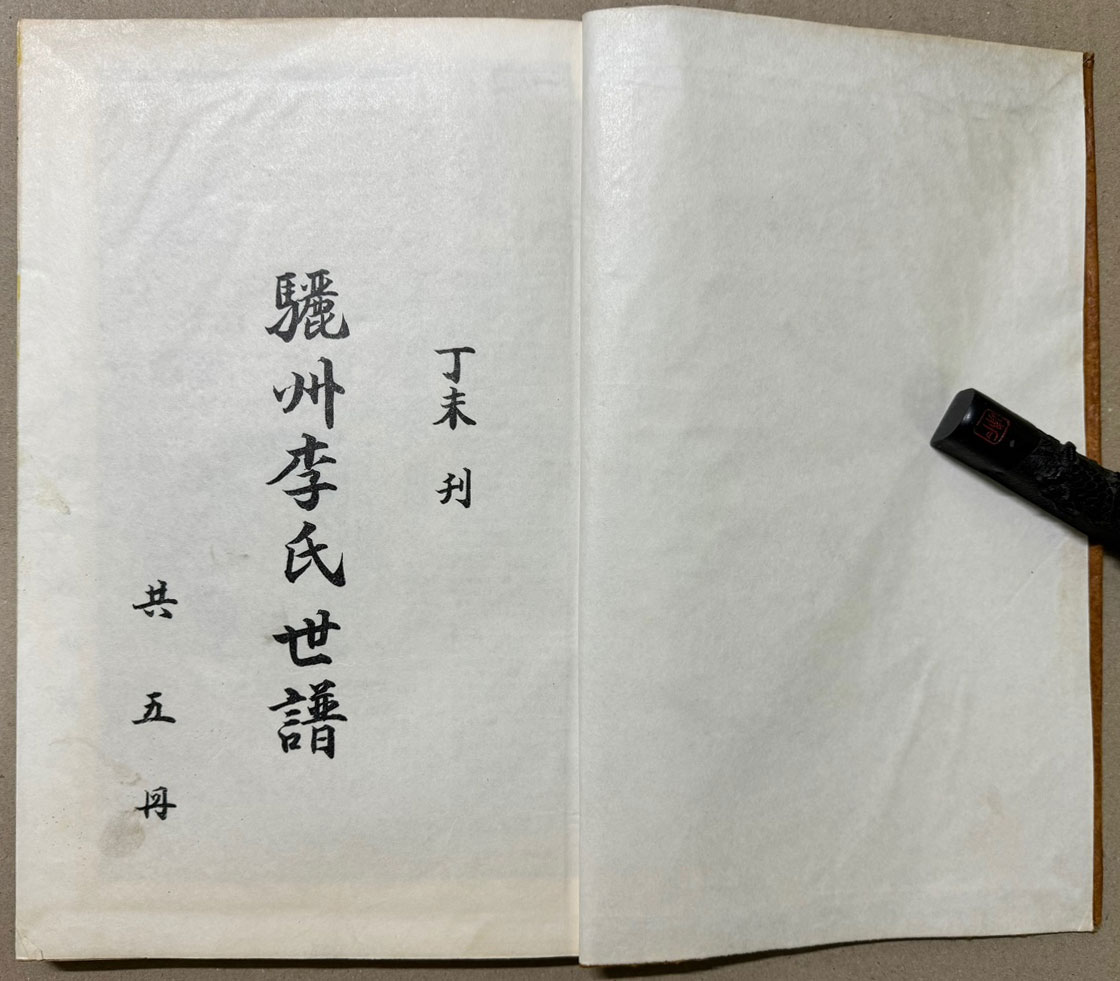 丁未 刋
驪州李氏世譜
共五冊